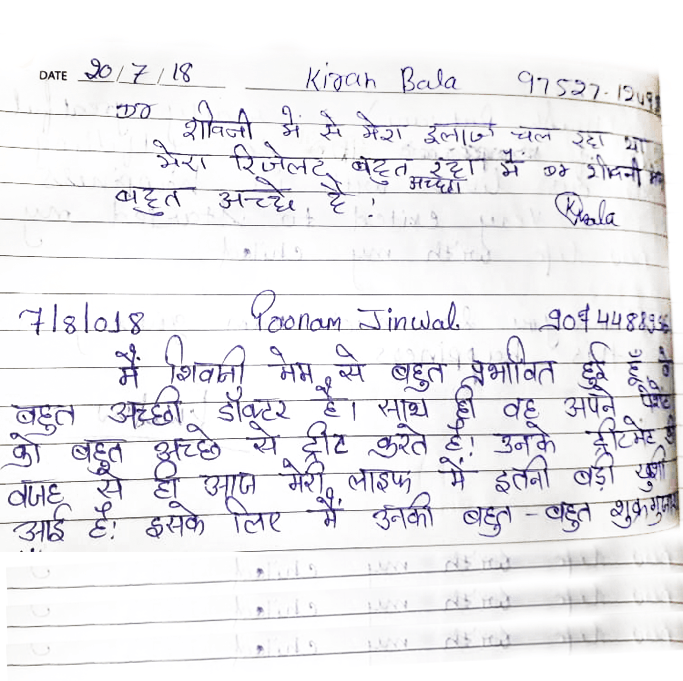 DATE 20/7/18 Kiran Bala 97527-12098
Dr शीवनी में से मेरा इलाज चल रहा था
मेरा रिजेलट बहुत अच्छा रहा में Dr शीवनी
बहुत अच्छे है !
KBala
7/8/018 Poonam Jinwal.
मैं शिवानी मेम से बहुत प्रभावित हुई हूँ वे
बहुत अच्छी डॉक्टर है। साथ ही वह अपने पेशेंट
को बहुत अच्छे से ट्रीट करते है! उनके ट्रीटमेंट की
वजह से ही आज मेरी लाइफ में इतनी बड़ी खुशी
आई है! इसके लिए मैं उनकी बहुत - बहुत शुक्रगुजार